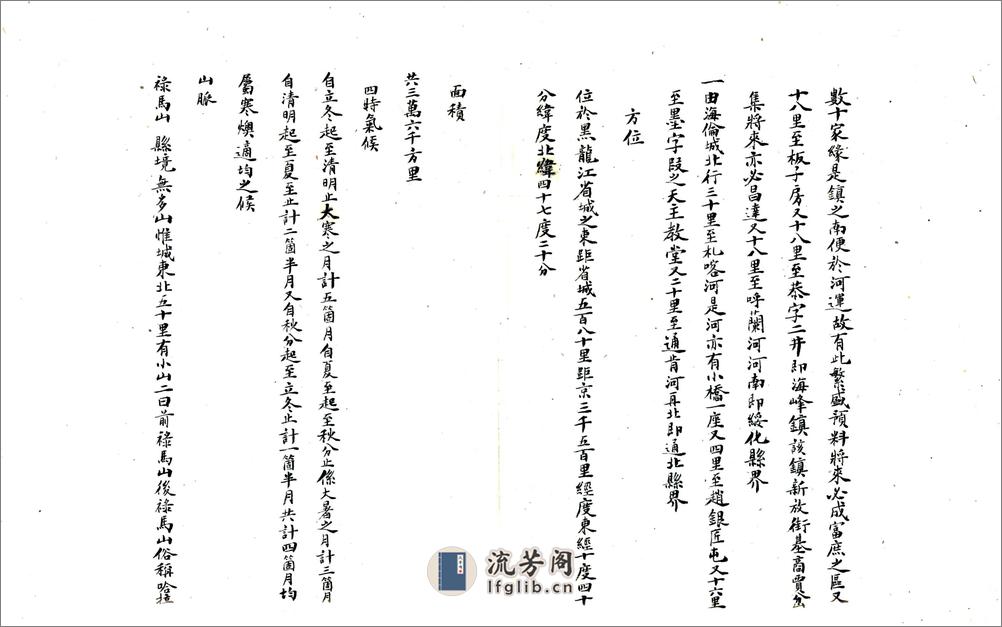 數十家緣是鎮之南便於河運故有此繁盛預料將來必成富庶之區又
十八里至板子房又十八里至恭字二井即海峰鎮該鎮新放街基商賈坌
集將來亦必昌達又十八里至呼蘭河河南即綏化縣界
一由海倫城北行三十里至札喀河是河亦有小橋一座又四里至趙銀匠屯又十六里
至墨字段之天主教堂又二十里至通肯河再北即通北縣界
方位
位於黑龍江省城之東距省城五百八十里距京三千五百里經度東經十度四十
分緯度北緯四十七度二十分
面積
共三萬六千方里
四時氣候
自立冬起至清明止大寒之月計五箇月自夏至起至秋分止係大暑之月計三箇月
自清明起至夏至止計二箇半月又自秋分起至立冬止計一箇半月共計四箇月均
屬寒燠適均之候
山脈
祿馬山 縣境無多山惟城東北五十里有小山二曰前祿馬山後祿馬山俗稱哈拉
流芳阁
lfglib.cn